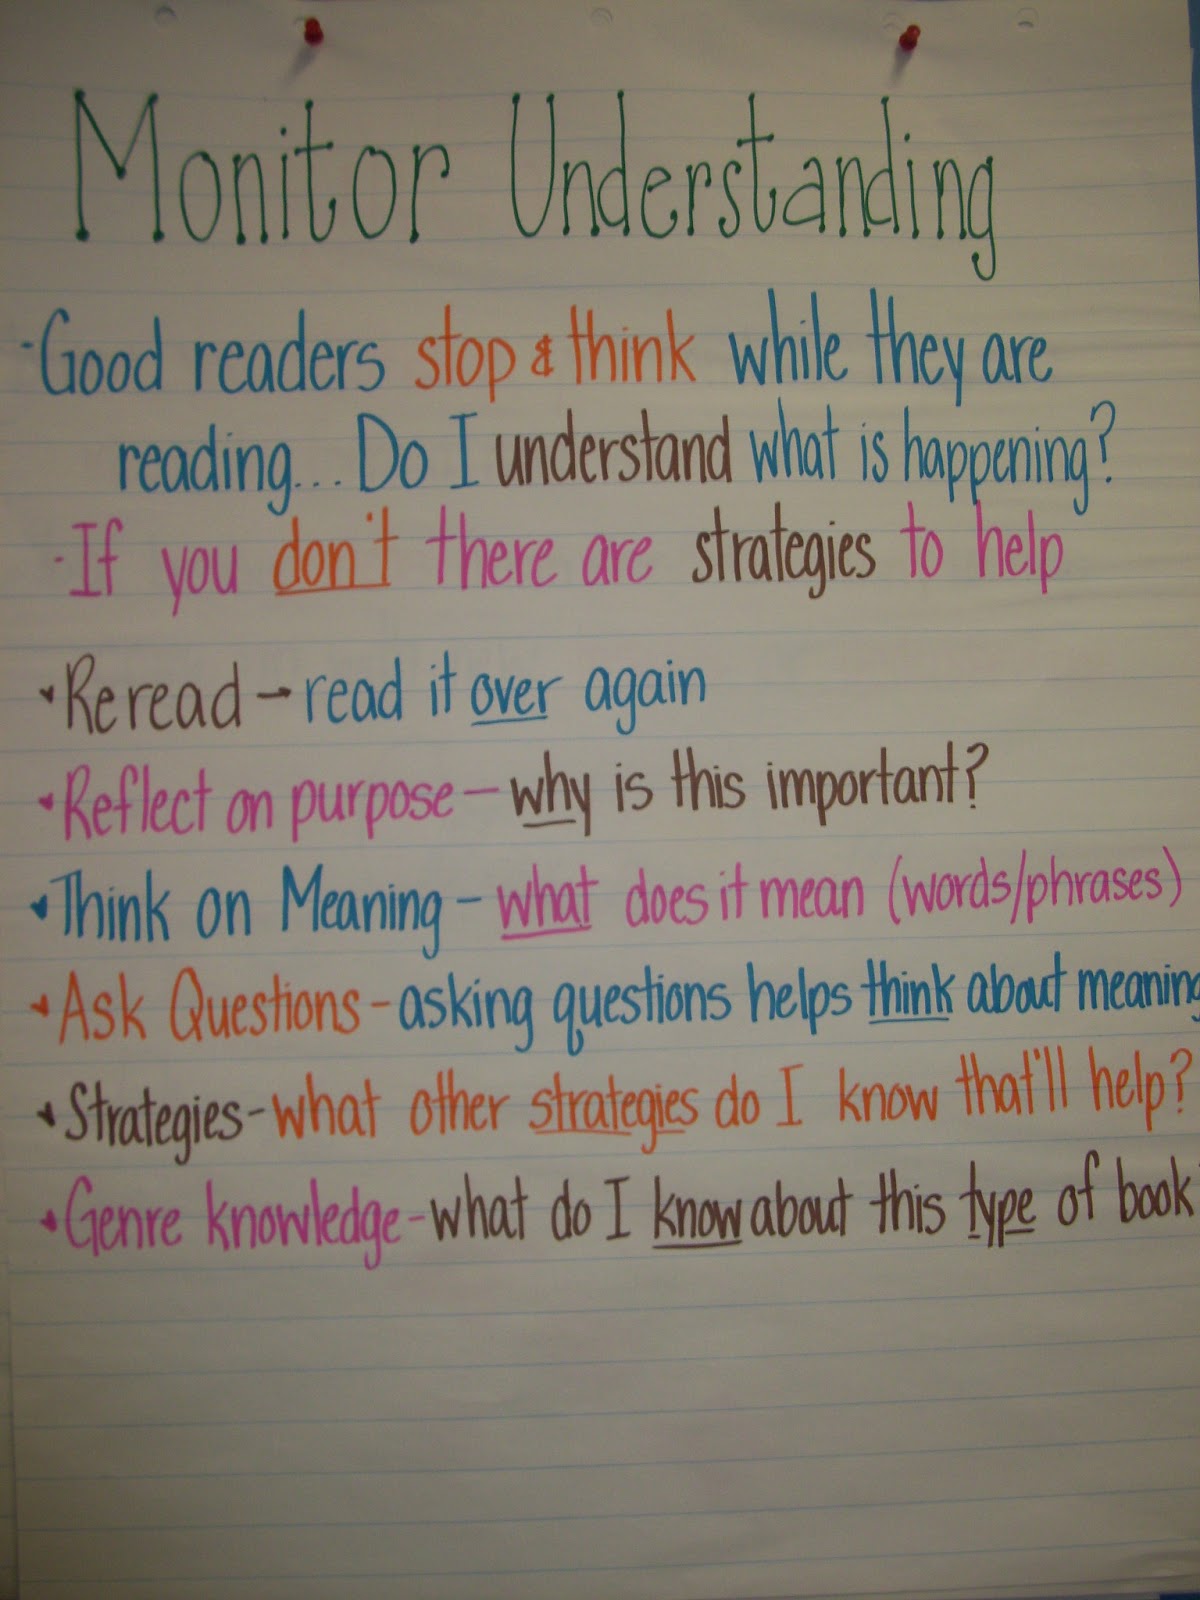 Monitor Understanding
-Good readers stop & think while they are
reading... Do I understand what is happening?
-If you don't there are strategies to help
Reread → read it over again
Reflect on purpose - why is this important?
Think on Meaning - what does it mean (words/phrases)
Ask Questions - asking questions helps think about meaning
Strategies - what other strategies do I know that'll help?
Genre knowledge - what do I know about this type of book